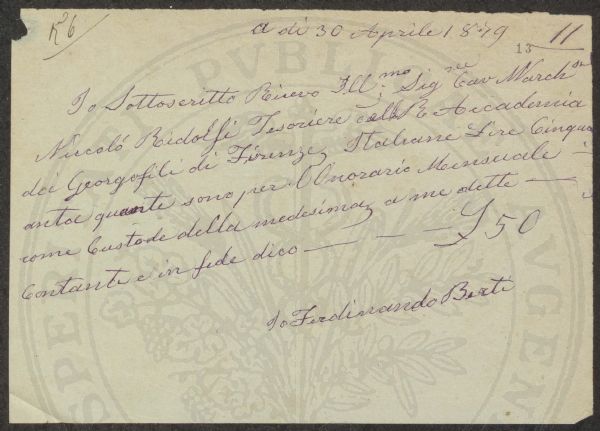 K° 6
a di 30 Aprile 1879
13 11
Io Sottoscritto Ricevo Ill.mo Sig.re Cav March.se
Niccoló Ridolfi Tesoriere della R Accademia
dei Georgofili di Firenze Italiane Lire Cinqu
anta quante sono per l'Onorario Mensuale
come Custode della medesima, a me dette —
Contante e in fede dico — — — £ 50
Io Ferdinando Berti
PVBLI
PROSPER
AVGEN